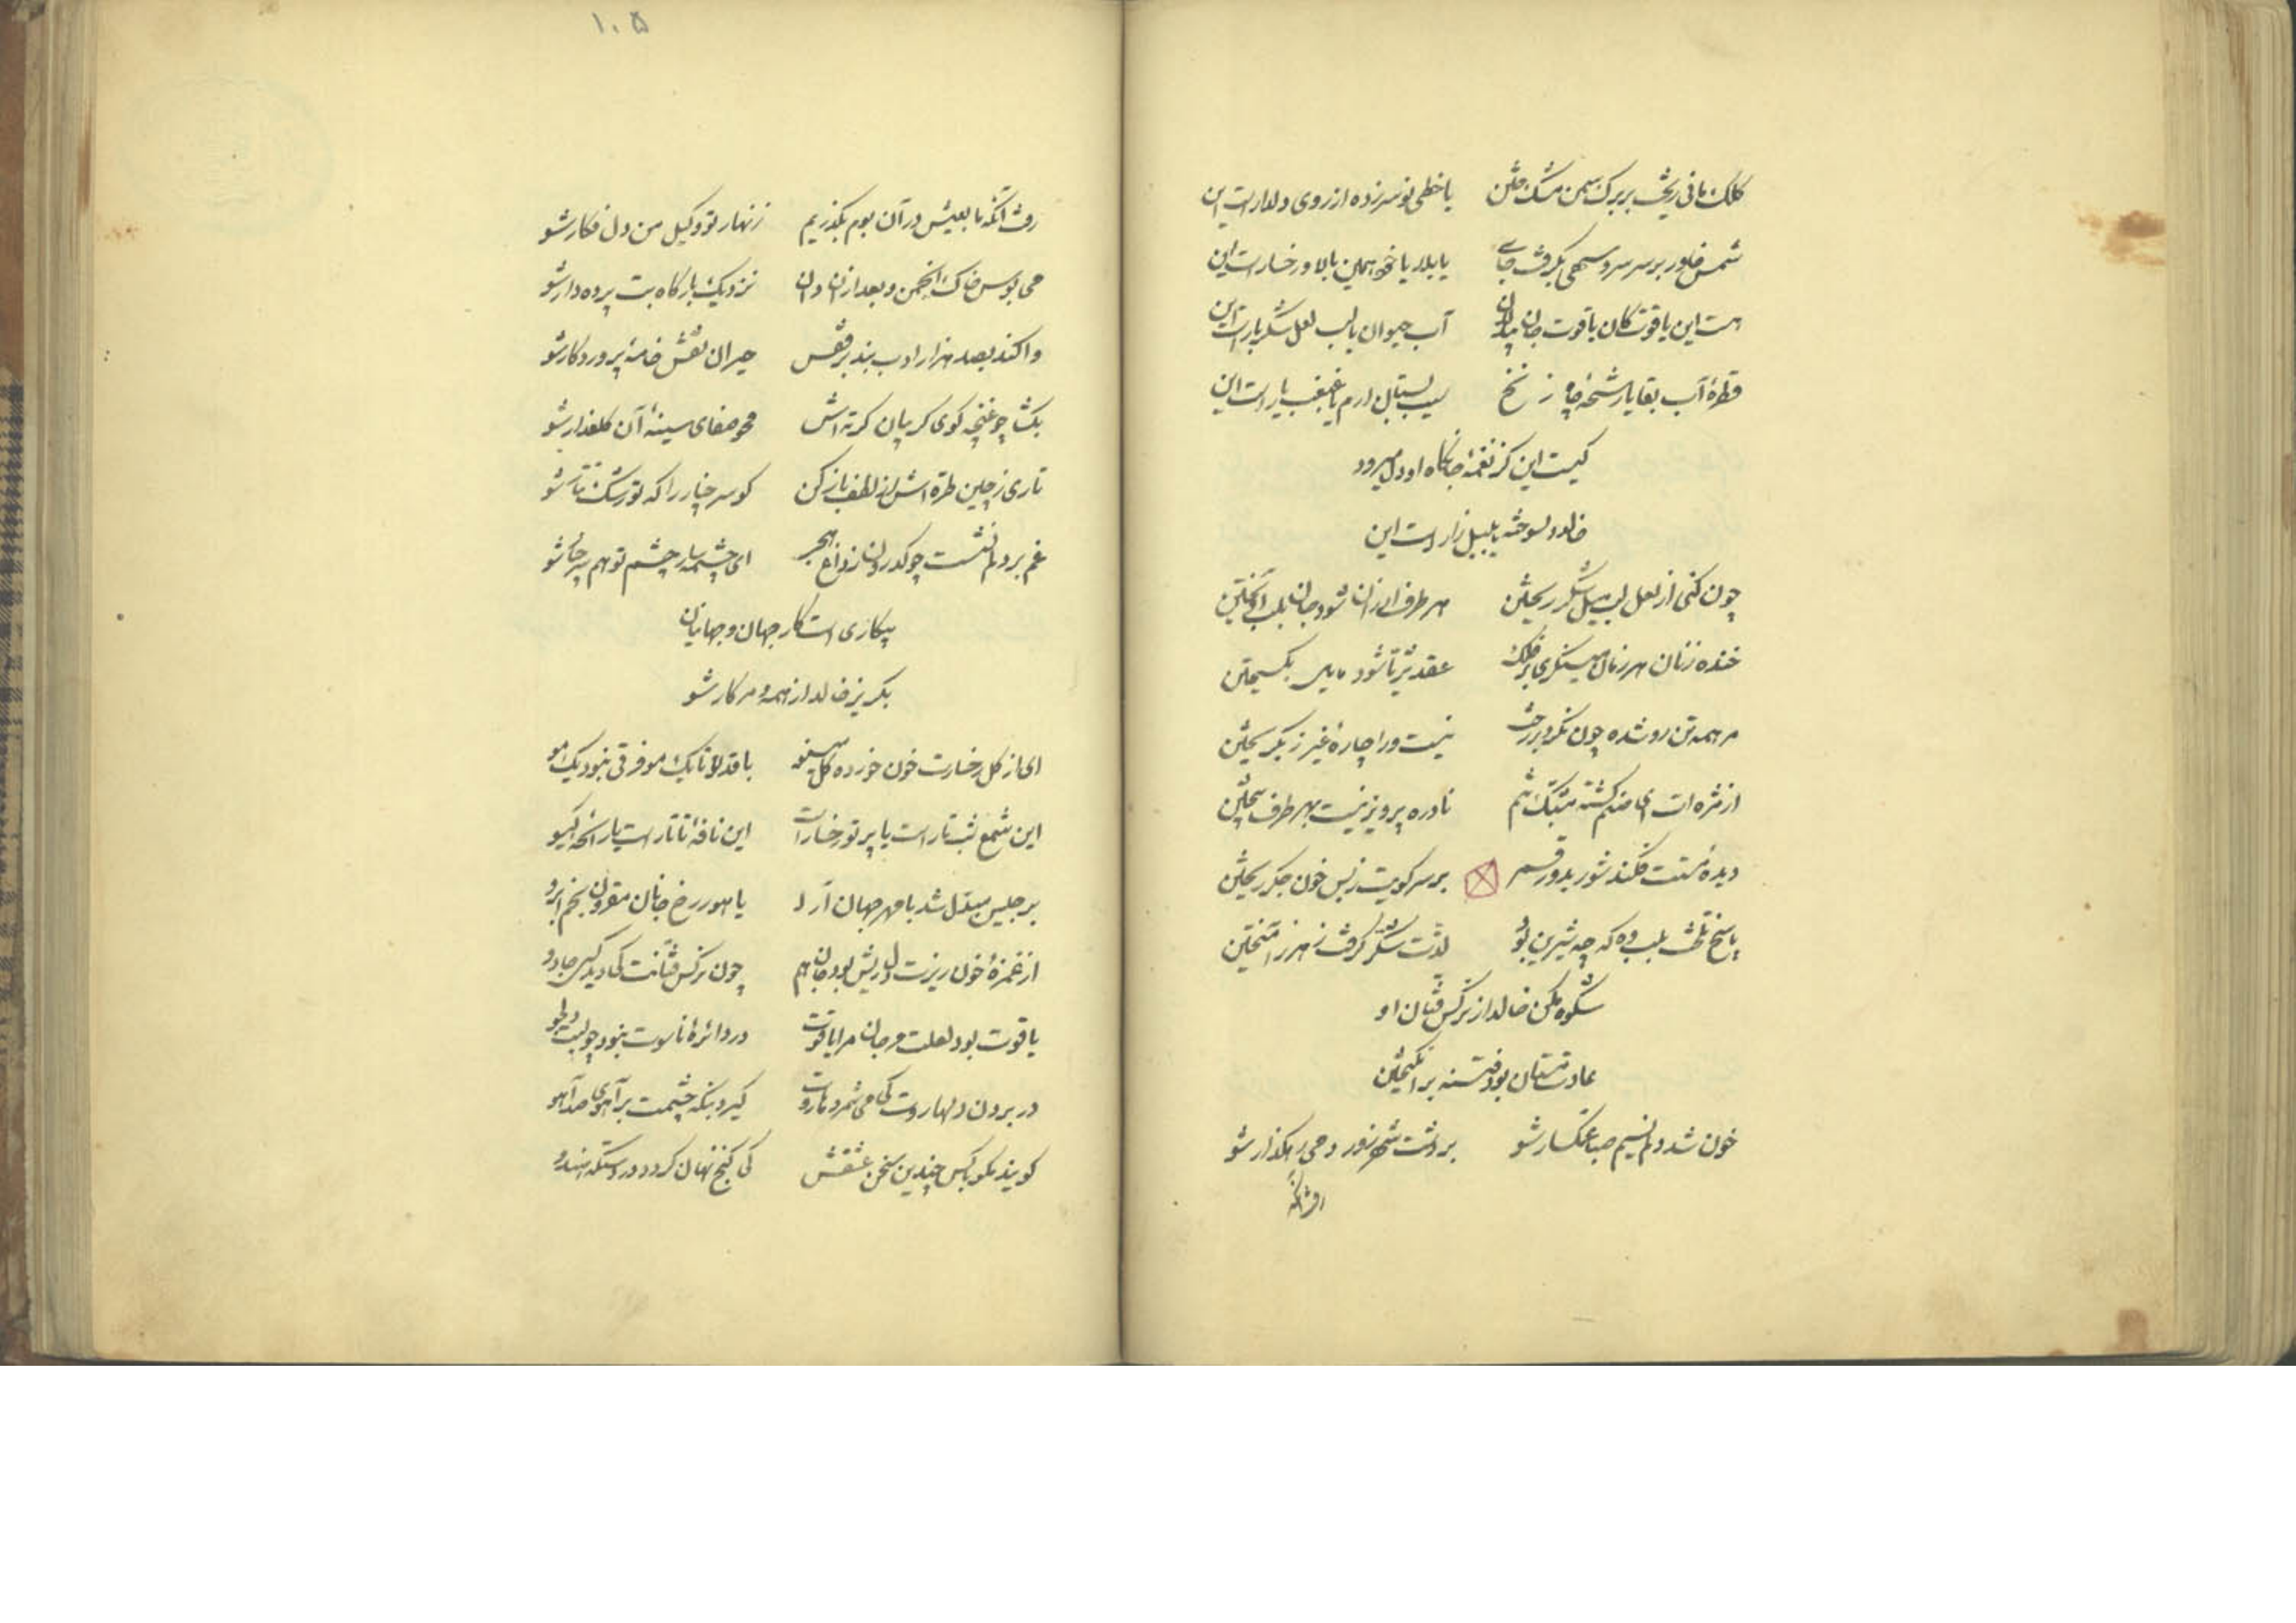 کلک مانی ریخت بر برک سمن مشک ختن یا خطی نو سر زده از روی دلدارست این
شمس خاور بر سر سرو سهی بگرفت جای یا بلا یا خود همین بالا و رخسارست این
هست این یاقوت کان یا قوت جان آب حیوان یا لب لعل شکر بارست این
قطرهٔ آب بقا یا رشحهٔ چاه زنخ سیب بستان ارم یا غبغب یارست این
کیست این کز نغمهٔ جانکاه او دل میرود
خالد دلسوخته یا بلبل زارست این
چون کنی از لعل لب میل شکر ریختن هر طرف ارزان شود جان بلب آویختن
خنده زنان هر زمان مینگری بر فلک عقد ثریا شود بگسیختن
مر همه تن رو شده چون نگرد بر رخت نیست ورا چارهٔ غیر ز بگریختن
از مژه ات ای صنم کشته مشبک تنم نادره پرویز نیست بهر طرف بیختن
دیدهٔ مستت فکند شور بدور قمر بر سر کویت ز بس خون جگر ریختن
پاسخ تلخت بلب وه که چه شیرین بود لذت شکر گرفت زهر ز آمیختن
شکوه مکن خالد از نرکس فتان او
عادت مستان بود فتنه بر انگیختن
خون شد دلم نسیم صبا غمکسار شو بر دشت شهر زور دمی رهکذار شو
رفت آنکه
۱۰۵
رفت آنکه ما بعیش در آن بوم بگذریم زنهار تو وکیل من دل فکار شو
می بوس خاک انجمن و بعد ازان نزدیک بارکاه بت پرده دار شو
واکن بصد هزار ادب بند برقعش حیران نقش خامهٔ پروردکار شو
بکشا چو غنچه کوی کریبان کرته اش محو صفای سینهٔ آن کلعذار شو
تاری ز چین طره اش از لطف باز کن کو سر چنار را که تو رشک تتار شو
غم بر دلم نشست چو کدرون ز داغ هجر ای چشمه سار چشم تو هم
بیکاری است کار جهان و جهانیان
بکریز خالد از همه و مر کار شو
ای از کل رخسارت خون خورده کل با قد تو تا یک مو فرقی نبود یک مو
این شمع شب تارست یا پرتو رخسارت این نافهٔ تاتارست یا رائحهٔ کیسو
برجیس مبدل شد با مهر جهان آرا یا هور رخ جانان مقرون بخم ابرو
از غمزهٔ خون ریزت دل ریش بود جان هم چون نرکس فتانت کی دید کسی جادو
یاقوت بود لعلت مرجان مرا یا قوت در دائرهٔ ناسوت نبود چو لبت دلجو
در بردن دلها روت کی می شمرد ماروت کیرد بنکه چشمت بر آهوی صد آهو
کویند مکو با کس چندین سخن عشقش کی کنج نهان کردد در دستکه هندو